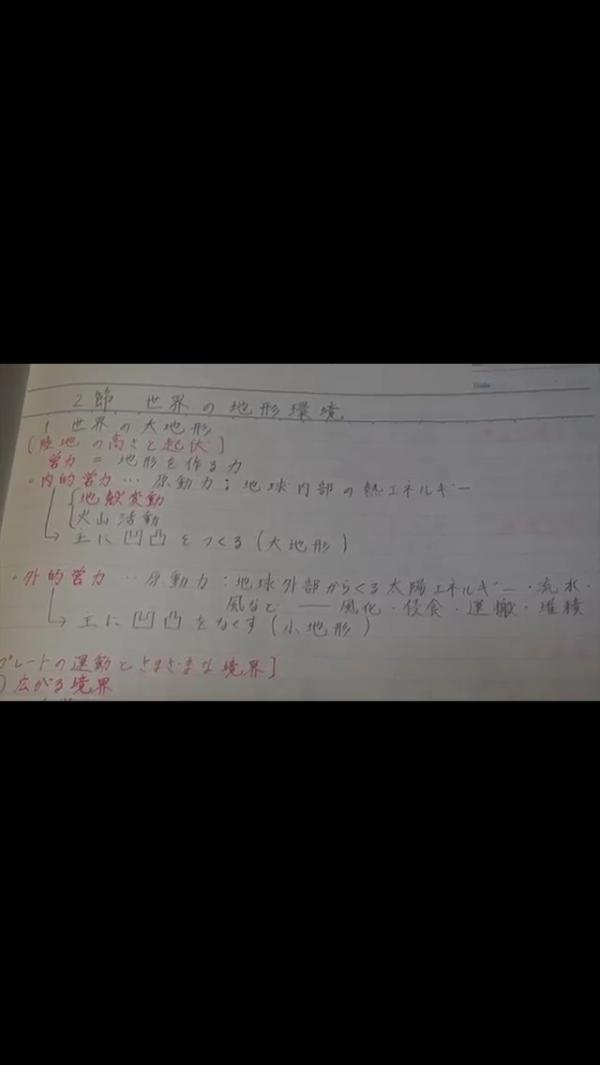 2節 世界の地形環境
1 世界の大地形
[陸地の高さと起伏]
営力 = 地形を作る力
・内的営力 … 原動力:地球内部の熱エネルギー
地殻変動
火山活動
→ 主に凹凸をつくる(大地形)
・外的営力 … 原動力:地球外部からくる太陽エネルギー・流水・
風など ― 風化・侵食・運搬・堆積
→ 主に凹凸をなくす(小地形)
プレートの運動とさまざまな境界]
)広がる境界